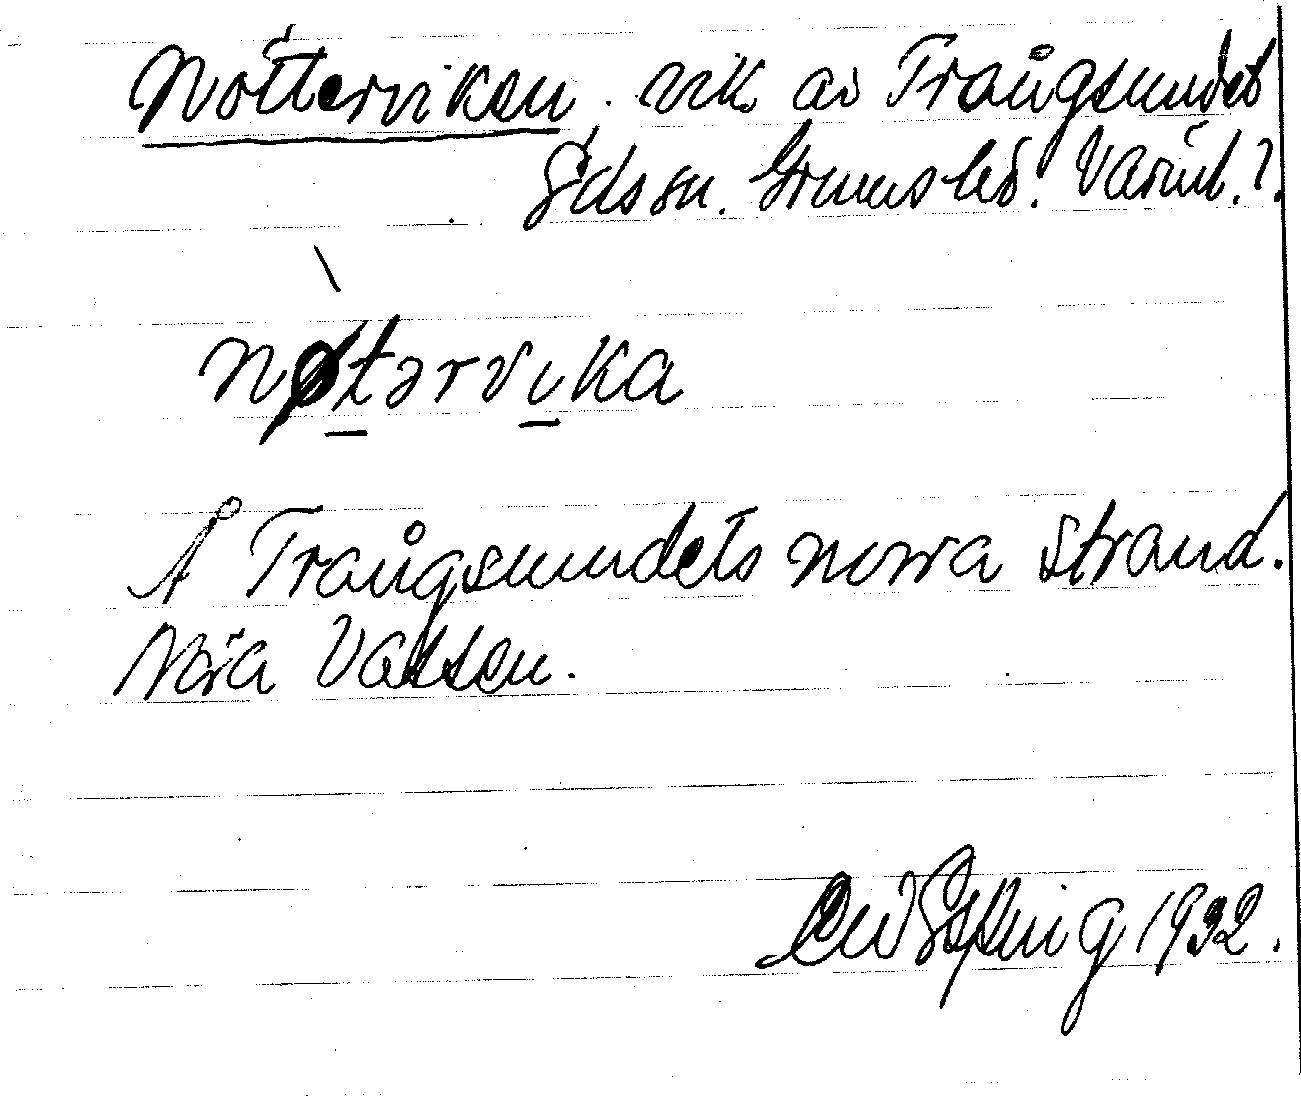 Nötterviken. vik av Trångsundet
Eds sn. Grums hd. Värml.?
nøtərvika
Å Trångsundets norra strand.
Nära Vassen.
1932.